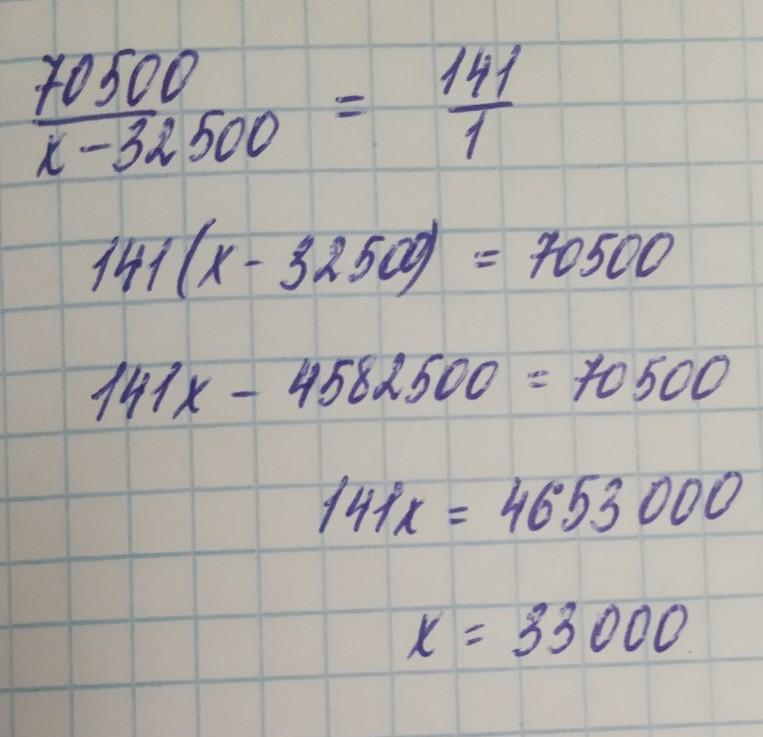 70500/(x-32500) = 141/1
141(x-32500) = 70500
141x - 4582500 = 70500
141x = 4653000
x = 33000